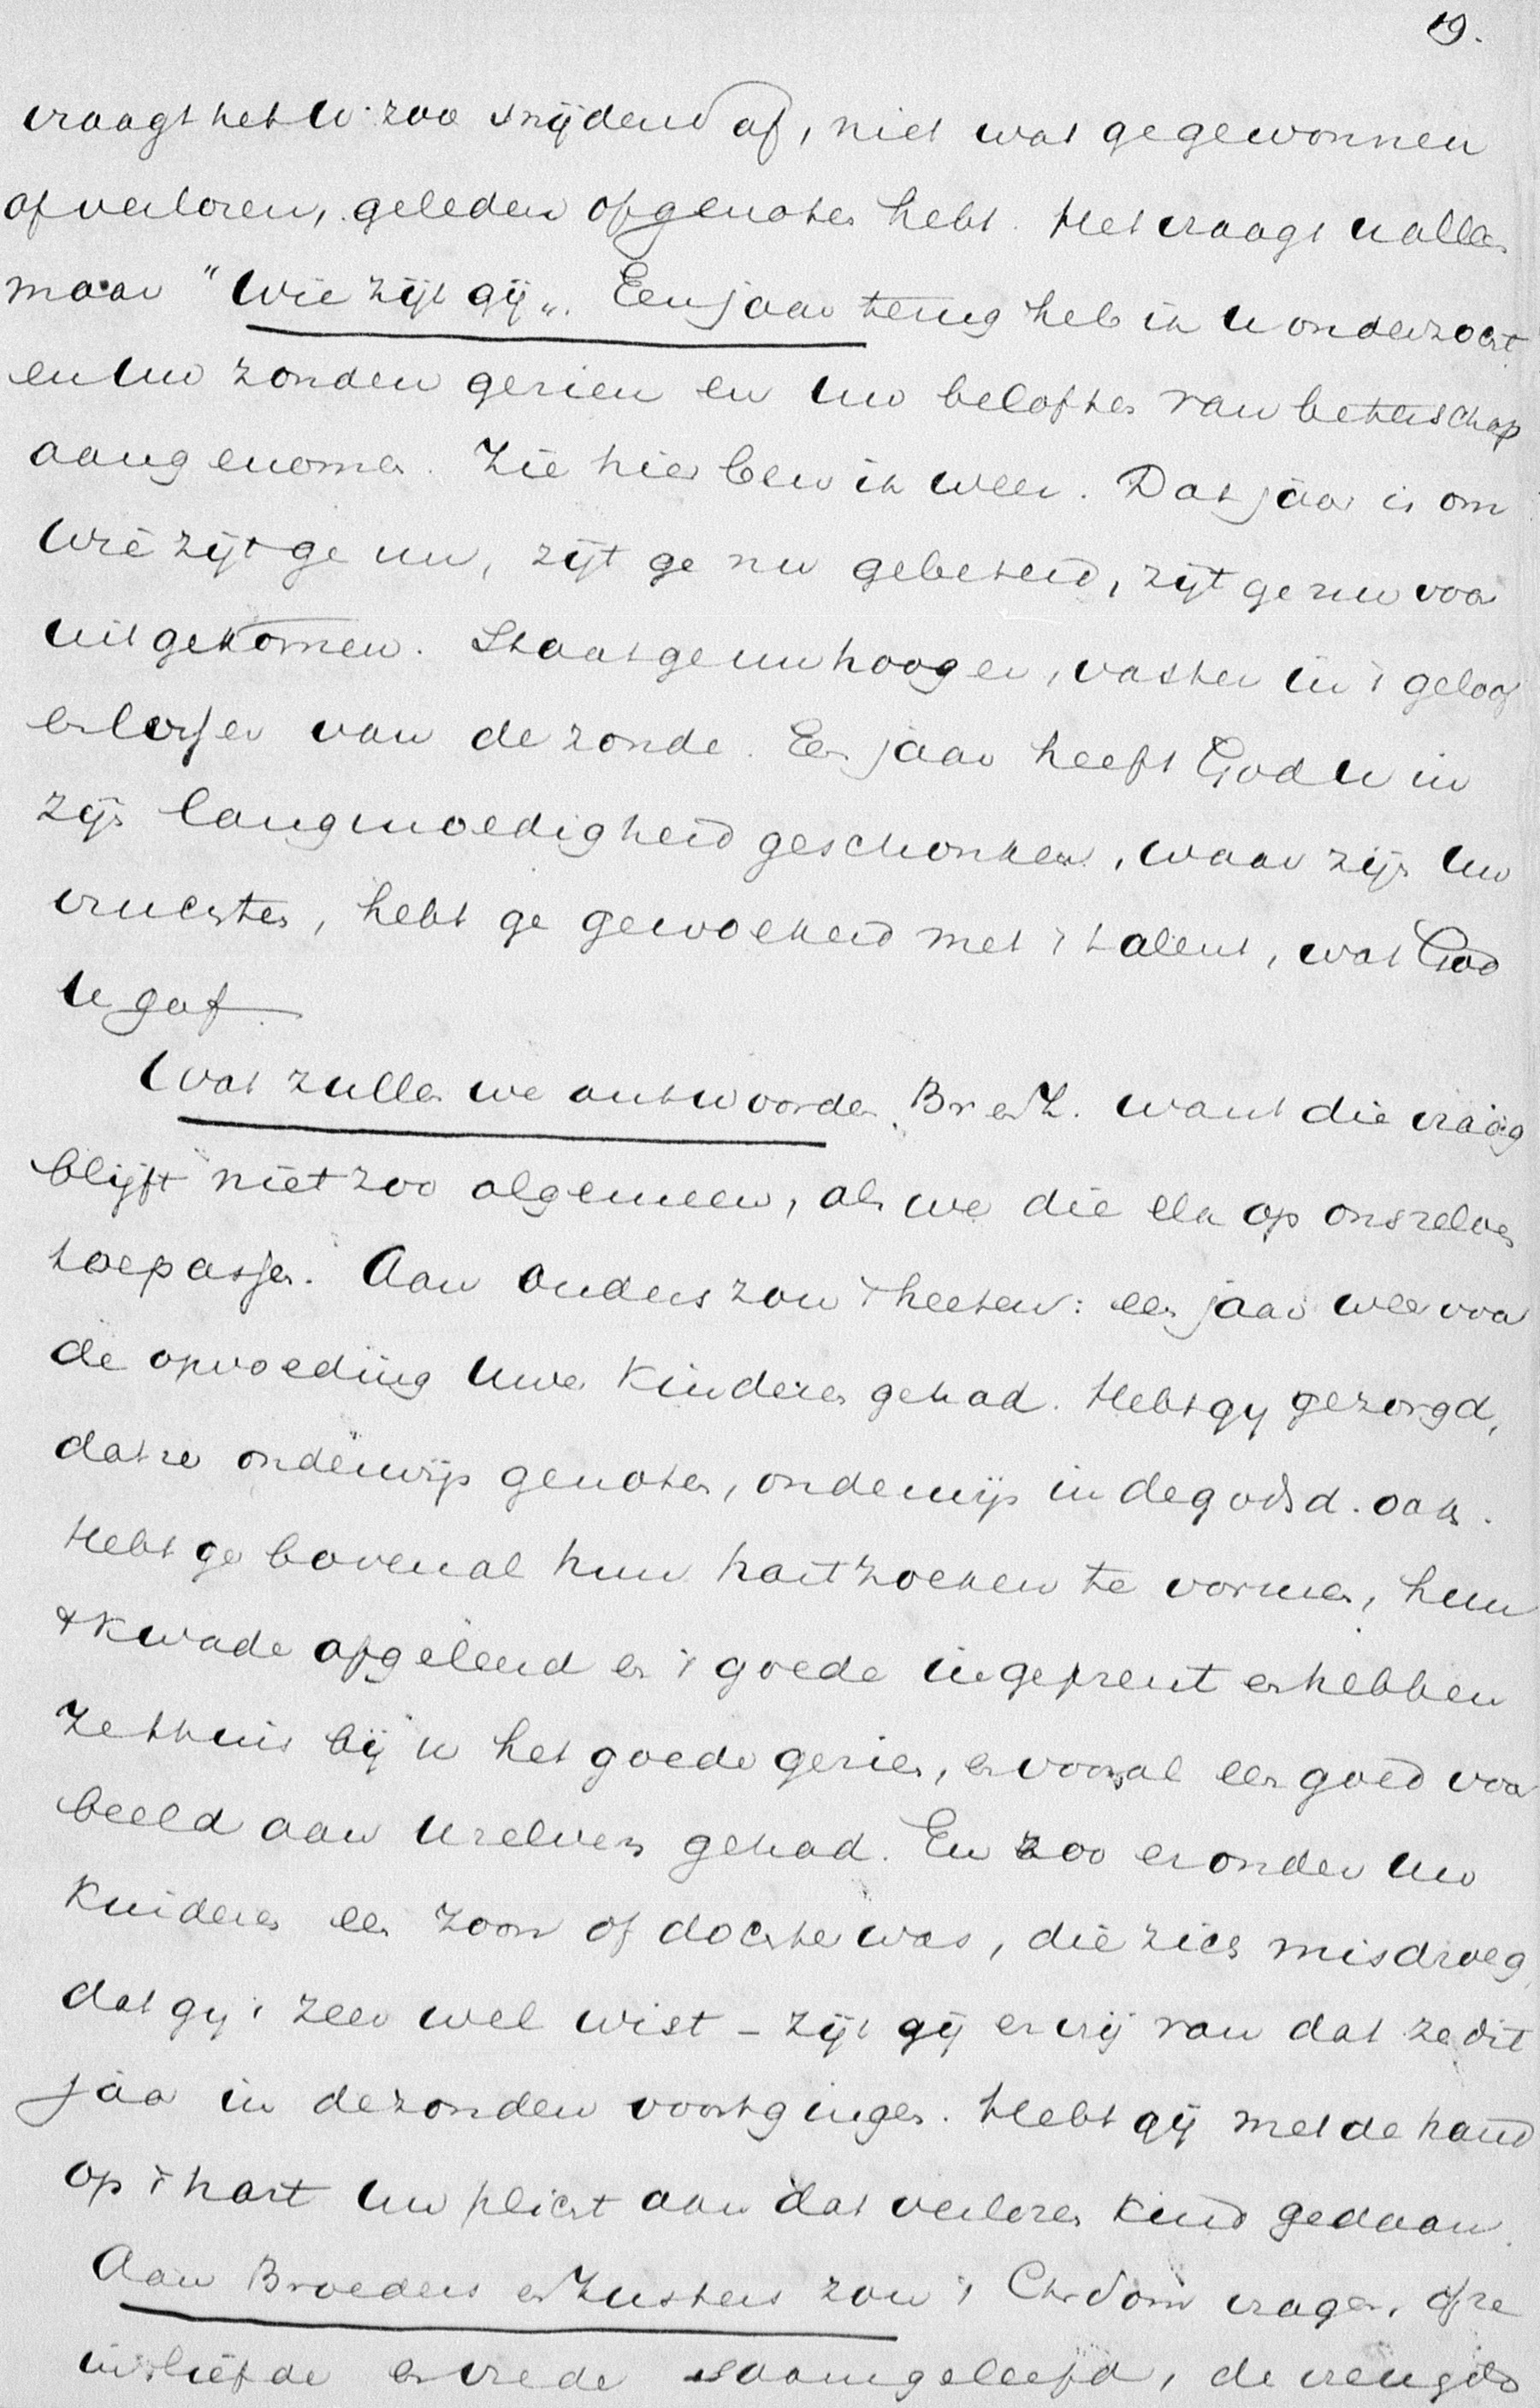 19.
vraagt het U zoo snijdend af, niet wat ge gewonnen
of verloren, geleden of genoten hebt. Het vraagt u alles
maar "Wie zijt gij". Een jaar terug heb ik U onderzocht
en Uw zonden gezien en Uw beloften van beterschap
aangenomen. Zie hier ben ik weer. Dat jaar is om
Wie zijt ge nu, zijt ge nu gebeterd, zijt ge nu voor
uitgekomen. Staat ge nu hooger, vaster in 't geloof
en losser van de zonde. Een jaar heeft God U in
zijn langmoedigheid geschonken, waar zijn Uw
vruchten, hebt ge gewoekerd met 't talent, wat God
U gaf.
Wat zullen we antwoorden Br en Z. want die vraag
blijft niet zoo algemeen, als we die elk op onszelven
toepassen. Aan Ouders zou 't heeten: een jaar weer voor
de opvoeding Uwer Kinderen gehad. Hebt gy gezorgd,
dat ze onderwijs genoten, onderwijs in de godsd. ook.
Hebt ge bovenal hun hart zoeken te vormen, hun
't kwade afgeleerd en 't goede ingeprent en hebben
ze thuis bij u het goede gezien, en vooral een goed voor
beeld aan Uzelven gehad. En zoo er onder Uw
Kinderen een zoon of dochter was, die zich misdroeg
dat gy 't zeer wel wist - zijt gij er vrij van dat ze dit
jaar in de zonden voortgingen. Hebt gij met de hand
op 't hart Uw plicht aan dat verloren Kind gedaan.
Aan Broeders en Zusters zou 't Chrdom vragen, of ze
in liefde en vrede saamgeleefd, de vreugde